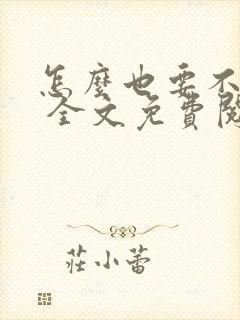 怎麼也要不
全文免費閱
莊小蕾